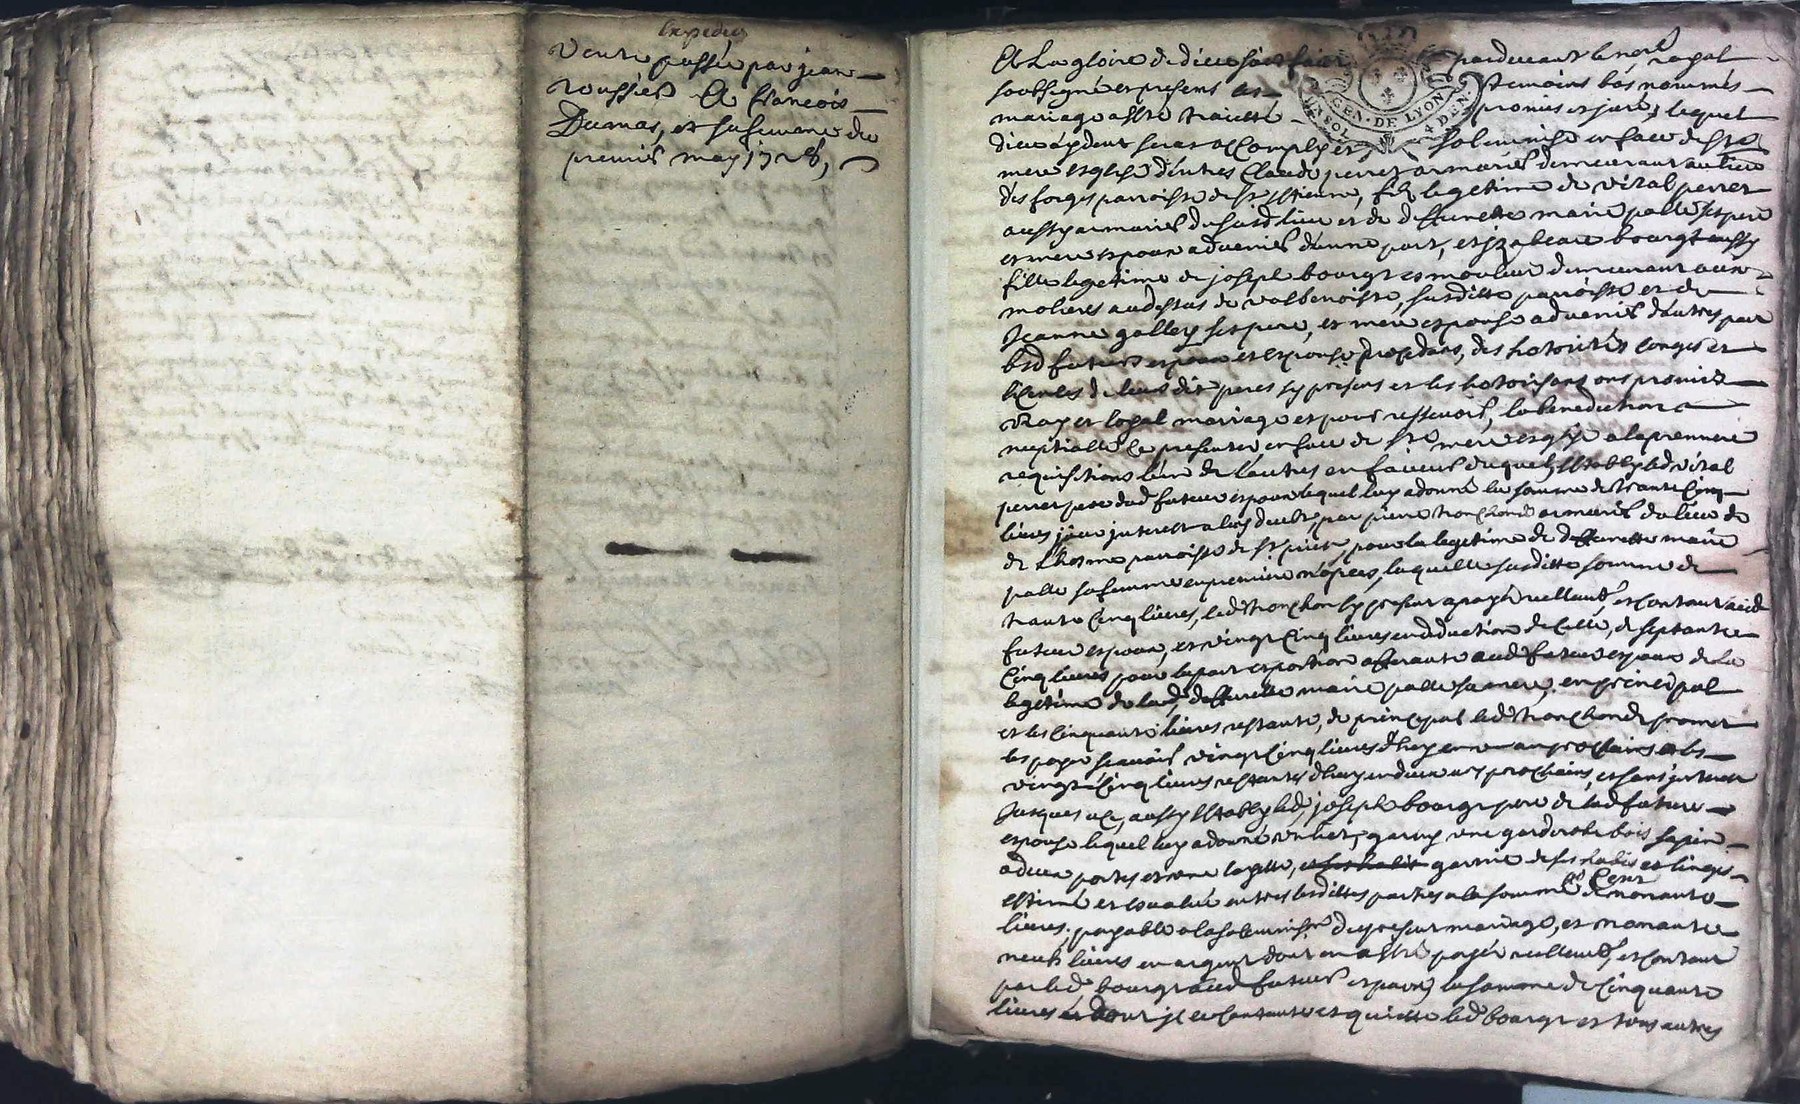 Expediée
Vente passée par jean
roussier A françois
Dumas, et sa femme du
premier may 1728,
A La gloire de dieu soit faict pardevant le nore royal
soubsigné et presens les temoins bas nommés
mariage a esté traicté promis et juré, lequel
dieu aydant sera accomply et solemnisé en face de ste
mere esglise d'entres Claude perret armurier demeurant au lieu
des forges parroisse de st estienne, filz legetime de vital perret
aussy armurier dususd lieu et de deffunctte marie palle ses pere
et mere espoux advenir d'une part, et jzabeau bourgt aussy
fille legetime de joseph bourgt esmouleur demeurant aux
molieres audessus de valbenoiste, susditte parroisse et de
Jeanne galley ses pere, et mere espouse advenir d'autres part
lesd futurs espoux et espouse procedans, des hotorités conges et
licences de leurs dit peres jcy presens et les hotorisant ont promis
vray et loyal mariage et pour ressevoir, la benediction
nuptialle ce presenter en face de ste mere esglise a la premiere
requisitions l'une de l'autres en faveur duquel jl estably led vital
perret pere dud futeur espoux lequel luy a donné la somme de trante cinq
livres jour jnterest a luy deubt, par pierre tronchond armurier du lieu de
de L'herme parroisse de st priest, pour la legetime de deffunctte marie
palle sa femme en premiere nopces, laquelle susditte somme de
trante cinq livres, led tronchon jcy present a payé reellemt, et contant aud
futeur espoux, et vingt cinq livres en deduction de celle, de septante
Cinq livres pour la part et portion afferante aud futeur espoux de la
legetime de lad, deffunctte marie palle sa mere, en principal
et les cinquante livres restante, de principal led tronchond promet
les payer scavoir vingt cinq livres d'huy en un an prochains et les
vingt Cinq livres restantes d'huy en deux ans prochains, et sans jnterest
Jusques a ce, aussy estably led, joseph bourgt pere de lad future
espouse lequel luy a donné un liet, garny une garderobe bois sapin
a deux portes et une layette, et ses habis garnie de ses habis et linges
estimé et evalué entres lesdittes parties a la somme de Cent nonante
livres. payable a la solemnison du present mariage, et nonante
neufz livres en argent dont en a esté payé reellemt, et contant
par led bourgt aud futeur espoux, la somme de Cinquante
livres et dont jl ce contante et quitte led bourgt et tous autres
GEN. DE LYON
UN SOL 4 DEN